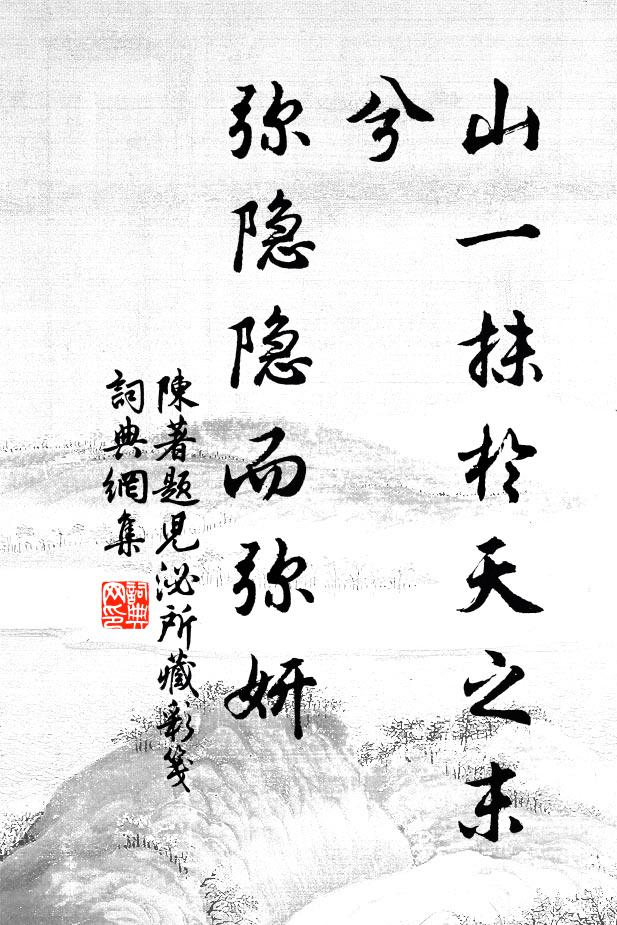 山一抹於天之末
兮
弥隐隐而弥妍
陳著題児泌所藏彩箋
詞典網集
詞典网印